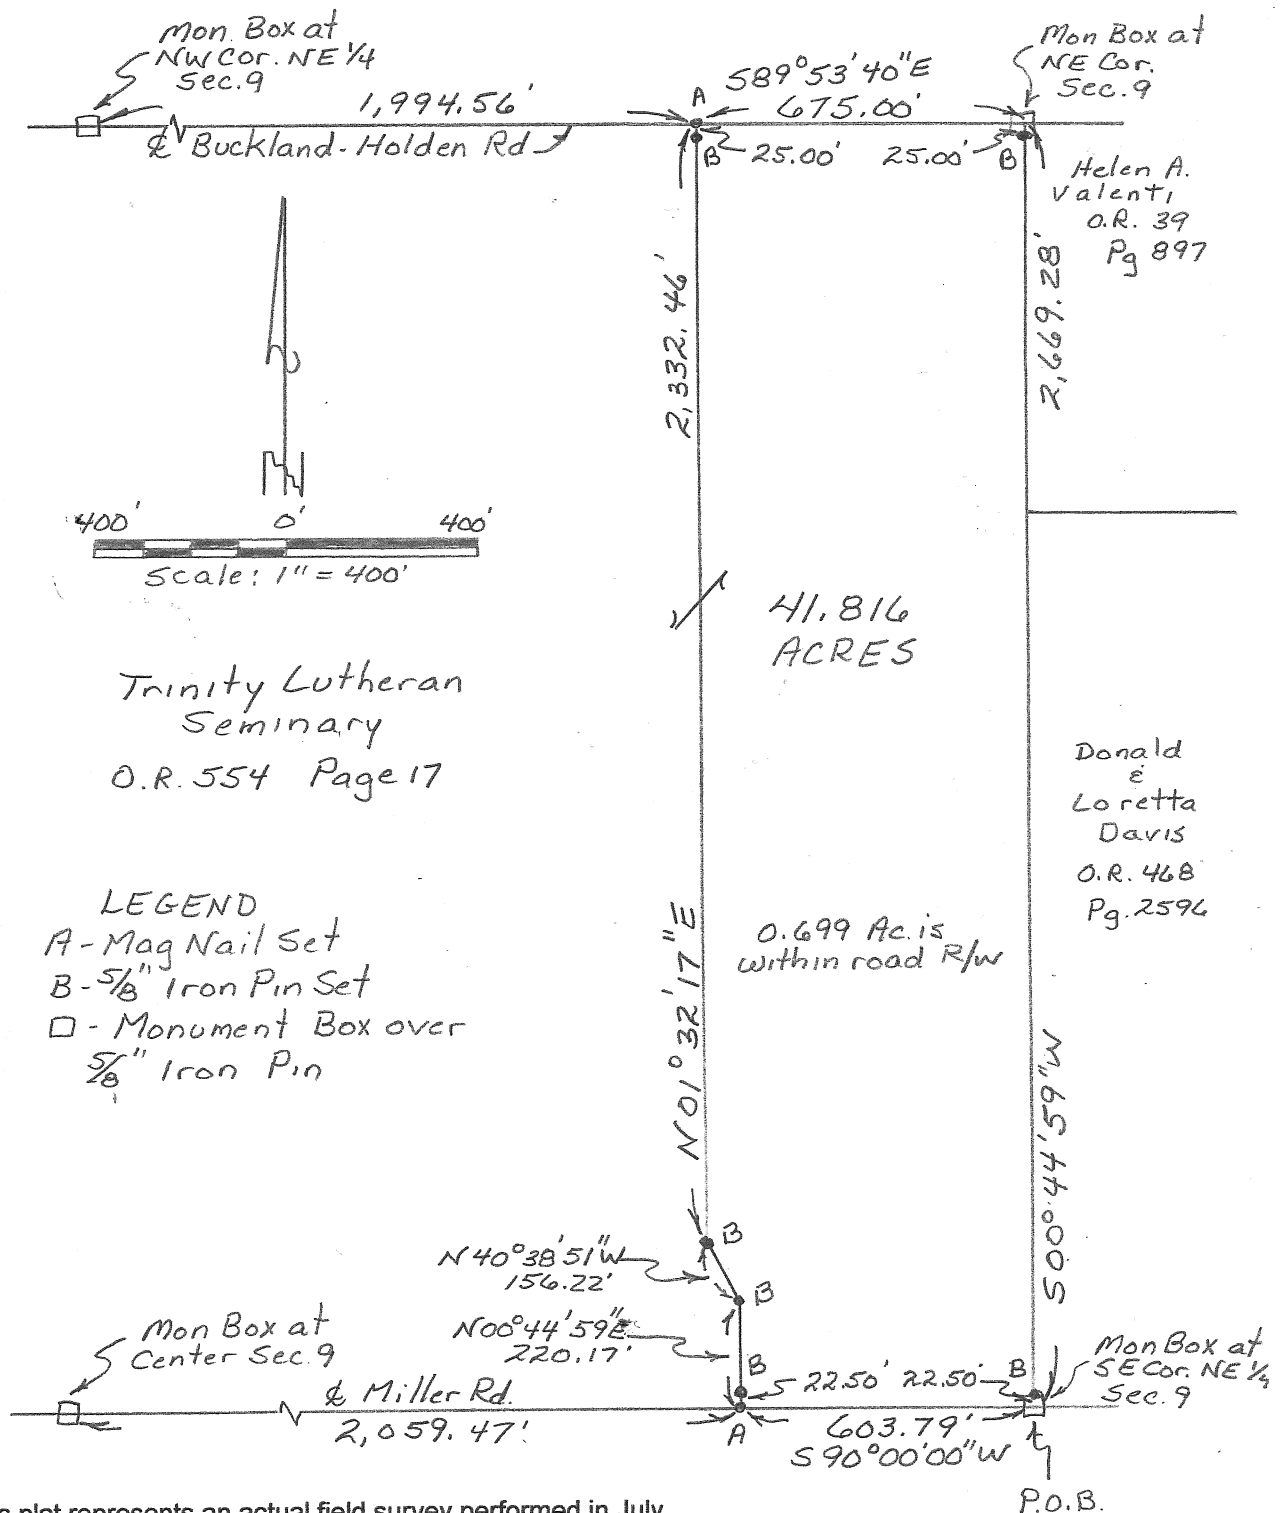 Mon. Box at
NW Cor. NE 1/4
Sec. 9
1,994.56'
℄ Buckland-Holden Rd
A
S89°53'40"E
675.00'
Mon Box at
NE Cor.
Sec. 9
B
25.00'
25.00'
B
Helen A.
Valenti
O.R. 39
Pg 897
2,332.46'
2,669.28'
N
400' 0' 400'
Scale: 1" = 400'
41.816
ACRES
Trinity Lutheran
Seminary
O.R. 554 Page 17
Donald
&
Loretta
Davis
O.R. 468
Pg. 2596
LEGEND
A - Mag Nail Set
B - 5/8" Iron Pin Set
□ - Monument Box over
5/8" Iron Pin
0.699 Ac. is
within road R/W
N01°32'17"E
S00°44'59"W
B
N40°38'51"W
156.22'
B
N00°44'59"E
220.17'
B
Mon Box at
Center Sec. 9
℄ Miller Rd.
2,059.47'
A
22.50' 22.50'
B
603.79'
S90°00'00"W
Mon Box at
SE Cor. NE 1/4
Sec. 9
P.O.B.
plat represents an actual field survey performed in July